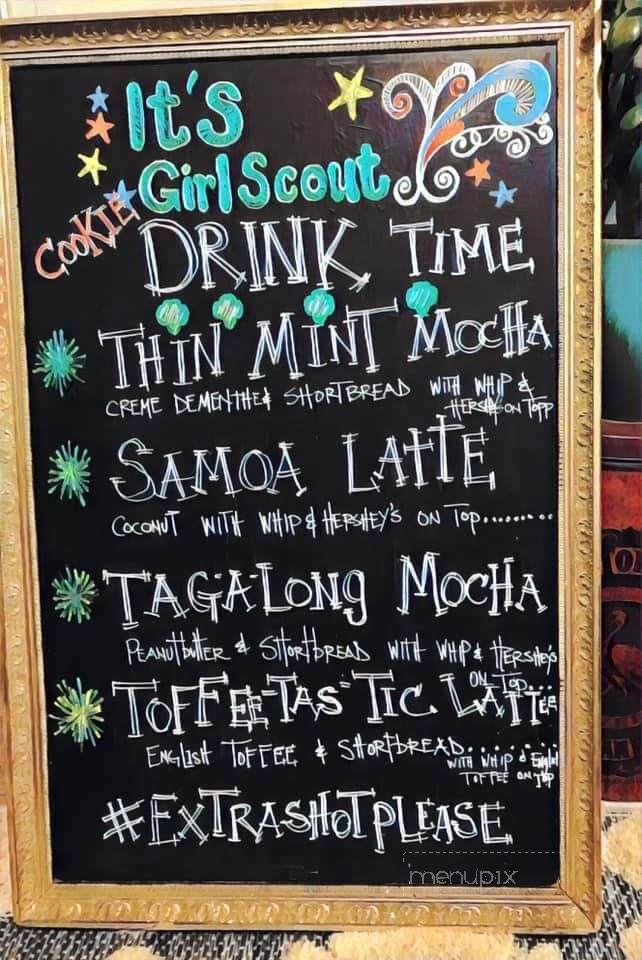 It's
Girl Scout
COOKIE
DRINK TIME
THIN MINT MOCHA
CREME DEMENTHE & SHORTBREAD WITH WHIP &
HERSHYS ON TOPP
SAMOA LATTE
COCONUT WITH WHIP & HERSHEY'S ON TOP.........
TAGALONG MOCHA
PEANUTBUTTER & SHORTBREAD WITH WHIP & HERSHEY'S
ON TOP...
TOFFEE-TAS-TIC LATTEE
ENGLISH TOFFEE & SHORTBREAD.......
WITH WHIP & English
TOFFEE ON TOP
#EXTRASHOTPLEASE
menupix